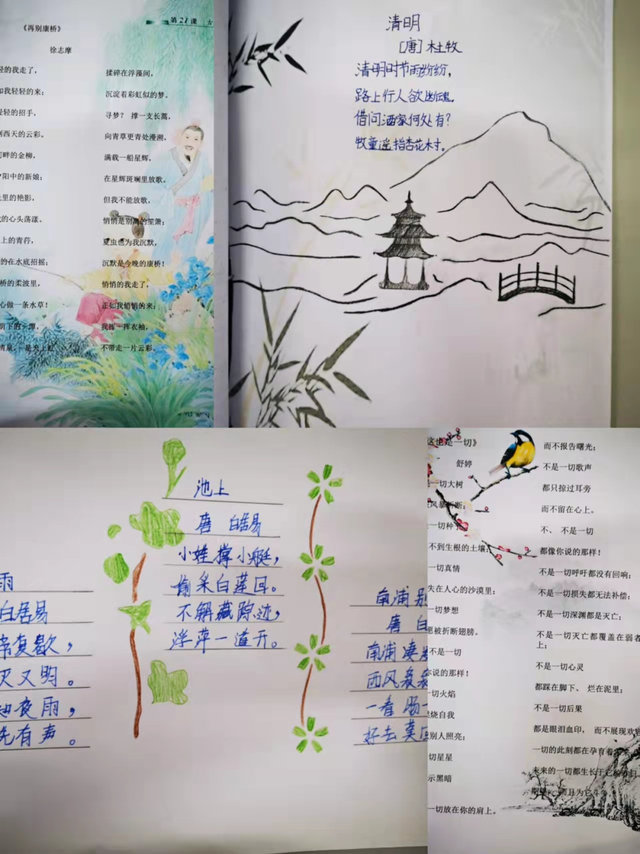 第21课
《再别康桥》
徐志摩
轻的我走了,
如我轻轻的来;
轻的招手,
别西天的云彩。
河畔的金柳,
夕阳中的新娘;
里的艳影,
的心头荡漾。
上的青荇,
的在水底招摇;
桥的柔波里,
心做一条水草!
下的一潭,
清泉,是天上虹
揉碎在浮藻间,
沉淀着彩虹似的梦。
寻梦? 撑一支长篙,
向青草更青处漫溯,
满载一船星辉,
在星辉斑斓里放歌。
但我不能放歌,
悄悄是别离的笙箫;
夏虫也为我沉默,
沉默是今晚的康桥!
悄悄的我走了,
正如我悄悄的来;
我挥一挥衣袖,
不带走一片云彩。
清明
[唐] 杜牧
清明时节雨纷纷,
路上行人欲断魂。
借问酒家何处有?
牧童遥指杏花村。
雨
白居易
啼复歇,
灭又明。
知夜雨,
先有声。
池上
唐 白居易
小娃撑小艇,
偷采白莲回。
不解藏踪迹,
浮萍一道开。
南浦别
唐 白
南浦凄
西风袅袅
一看肠一
好去莫回
这也是一切》
舒婷
一切大树
风暴折断;
一切种子
不到生根的土壤;
一切真情
失在人心的沙漠里;
一切梦想
被折断翅膀。
不是一切
你说的那样!
一切火焰
燃烧自我
别人照亮;
一切星星
示黑暗
一切放在你的肩上。
而不报告曙光;
不是一切歌声
都只掠过耳旁
而不留在心上。
不、 不是一切
都像你说的那样!
不是一切呼吁都没有回响;
不是一切损失都无法补偿;
不是一切深渊都是灭亡;
不是一切灭亡都覆盖在弱者
上;
不是一切心灵
都踩在脚下、 烂在泥里;
不是一切后果
都是眼泪血印, 而不展现欢
一切的此刻都在孕育着
未来的一切都生长于